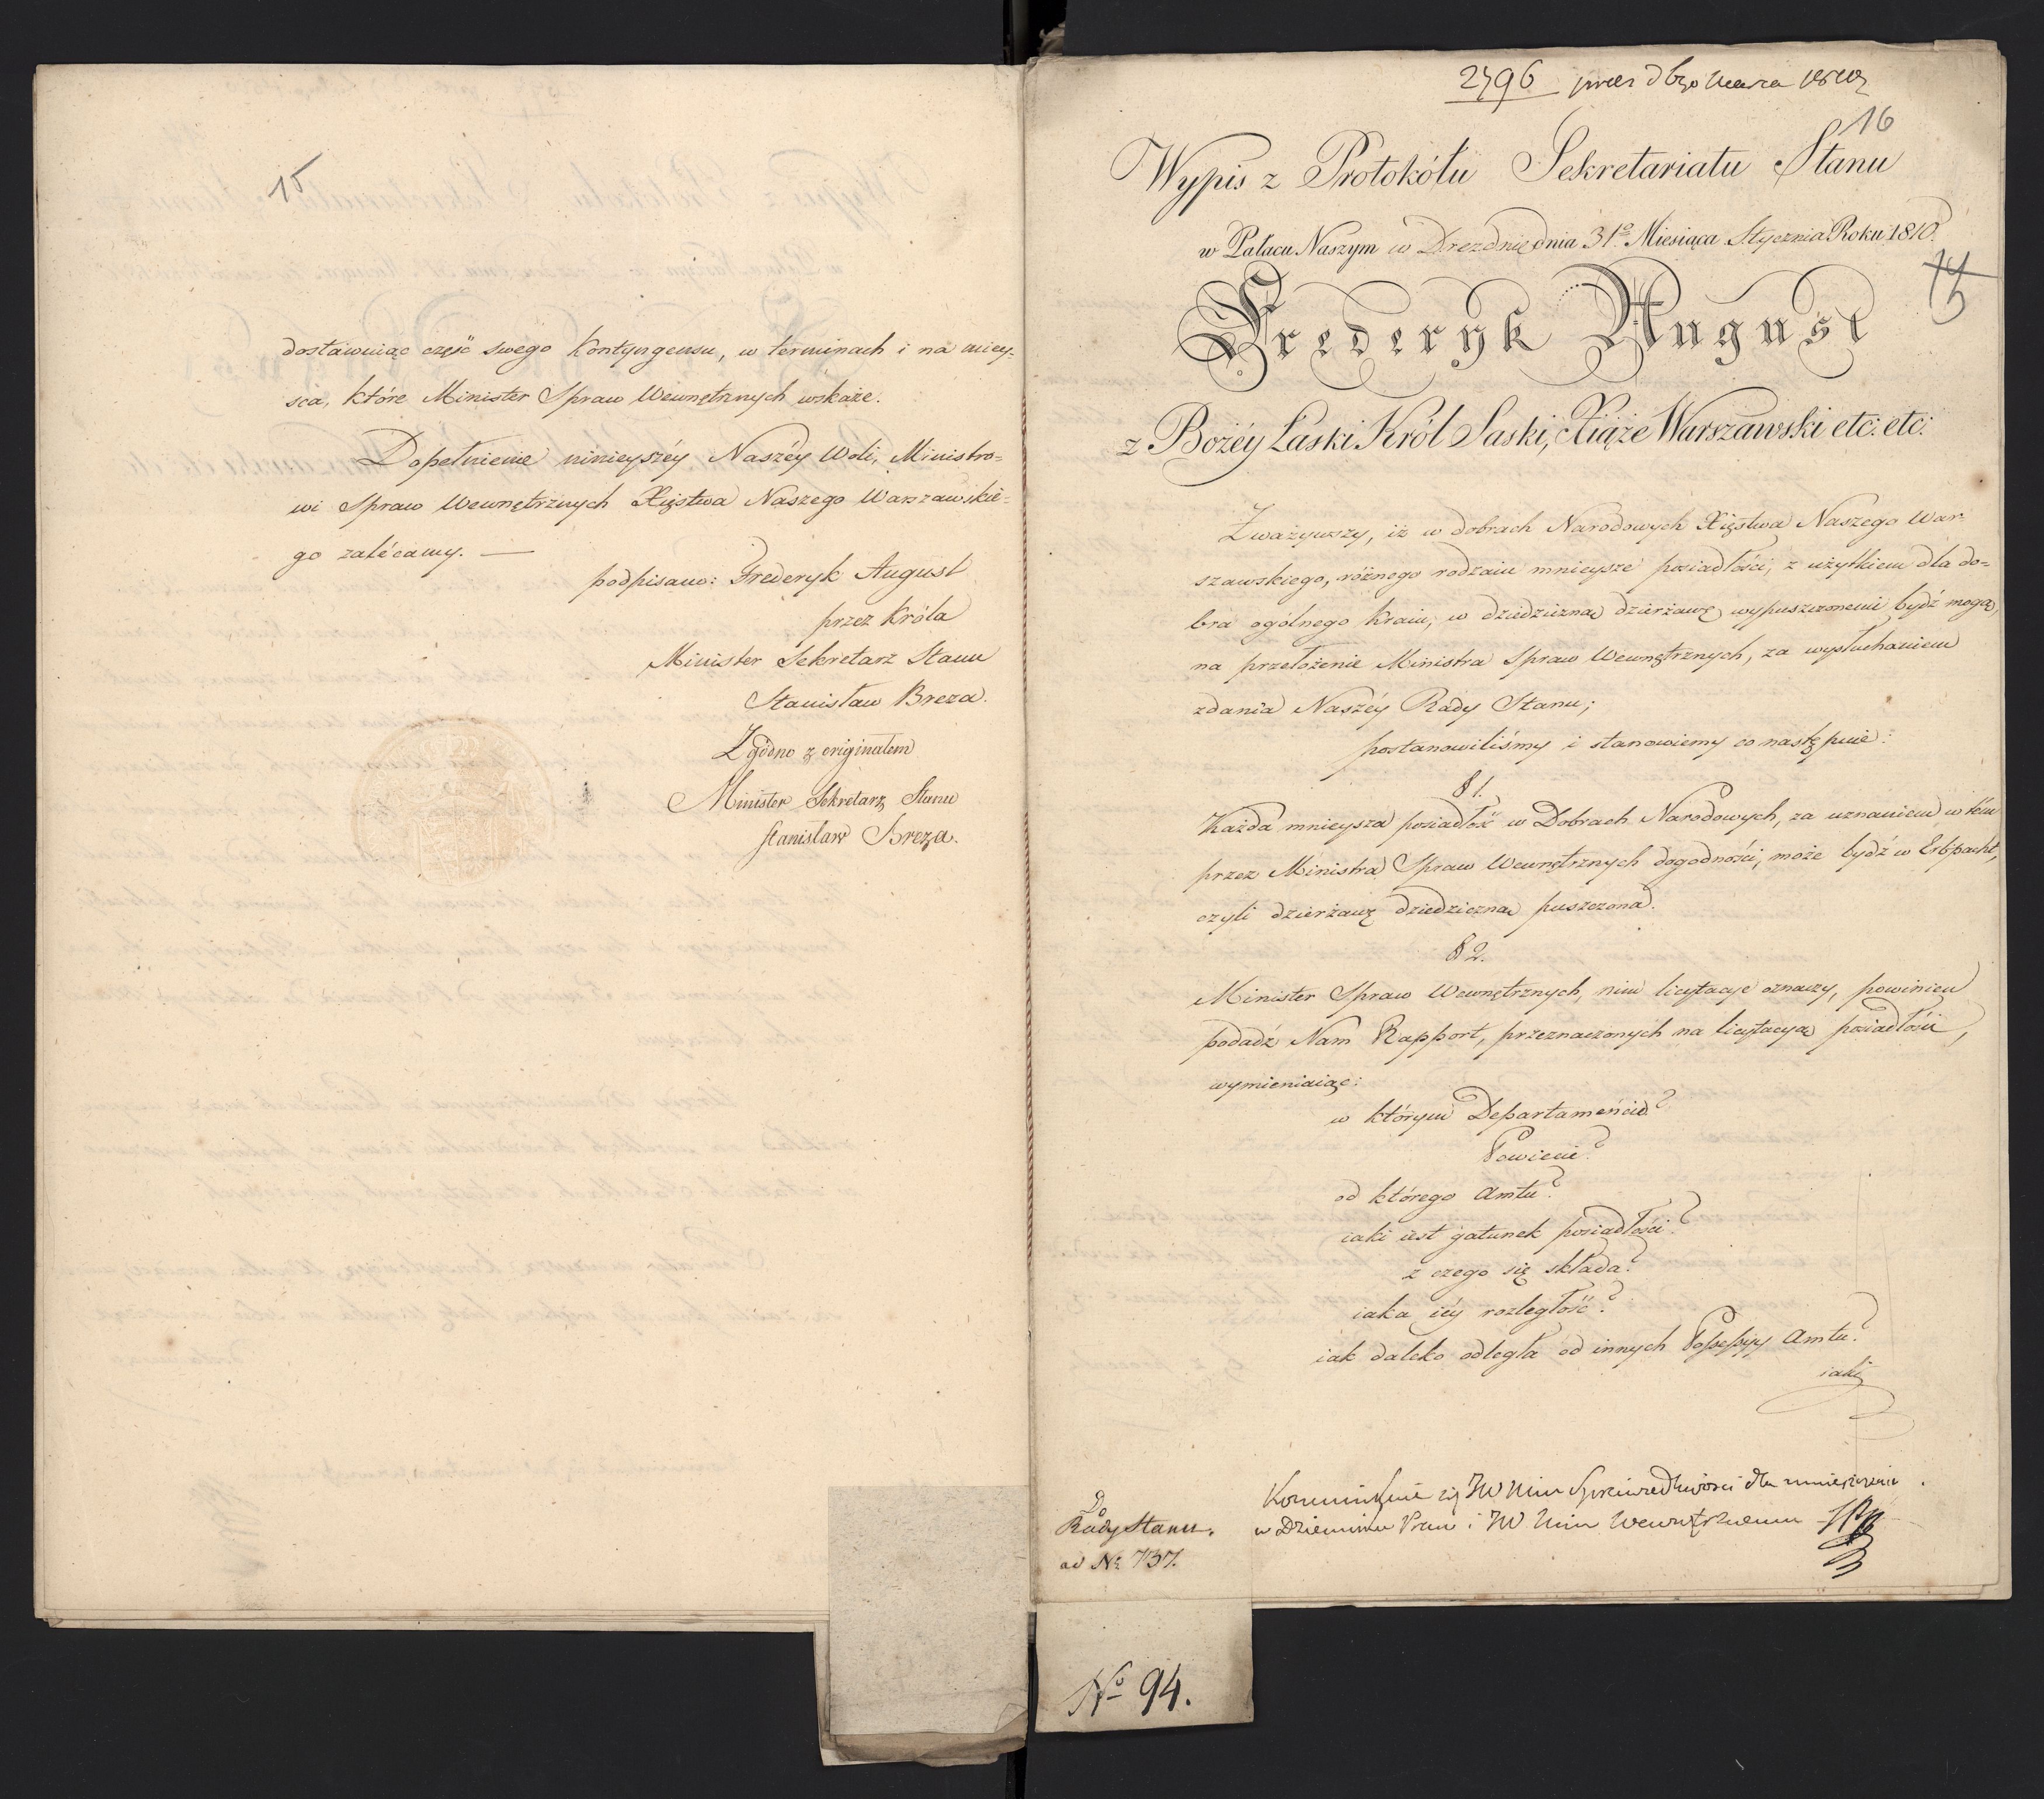 15
dostawuiąc część swego Kontyngensu, w terminach i na miey-
sca, które Minister Spraw Wewnętrznych wskaże.
Dopełnienie ninieyszéy Naszéy Woli, Ministro=
wi Spraw Wewnętrznych Xięstwa Naszego Warszawskie=
go zalécamy. —
podpisano: Frederyk August
przez Króla
Minister Sekretarz Stanu
Stanisław Breza.
Zgodno z originałem
Minister Sekretarz Stanu
Stanisław Breza.
2796 prez d 6go Marca 1810
16
Wypis z Protokółu Sekretariatu Stanu
w Pałacu Naszym w Dreznie dnia 31º Miesiąca Stycznia Roku 1810.
Frederyk August
z Bożéy Łaski Król Saski, Xiąże Warszawski etc: etc:
Zważywszy, iż w dobrach Narodowych Xięstwa Naszego War-
szawskiego, różnego rodzaiu mnieysze posiadłości, z użytkiem dla do=
bra ogólnego Kraiu, w dziedziczną dzierżawę wypuszczonemi bydź mogą,
na przełożenie Ministra Spraw Wewnętrznych, za wysłuchaniem
zdania Naszéy Rady Stanu;
postanowiliśmy i stanowiemy co następuie:
§ 1.
Każda mnieysza posiadłość w Dobrach Narodowych, za uznaniem w tém
przez Ministra Spraw Wewnętrznych dogodności, może bydź w Erbpacht,
czyli dzierżawę dziedziczną puszczona.
§ 2.
Minister Spraw Wewnętrznych, nim licytacye oznaczy, powinien
podadź Nam Rapport, przeznaczonych na licytacyą posiadłości,
wymieniaiąc:
w którym Departamencie?
Powiecie?
od którego Amtu?
iaki iest gatunek posiadłości?
z czego się składa?
iaka iéy rozległość?
iak daleko odległa od innych Possessyy Amtu?
iaki
Do
Rady Stanu.
ad Nº 737.
Kommunikuie się JW Min Sprawiedliwości dla umieszczenia
w Dzienniku Praw i JW Min Wewnętrznemu
Nº 94.